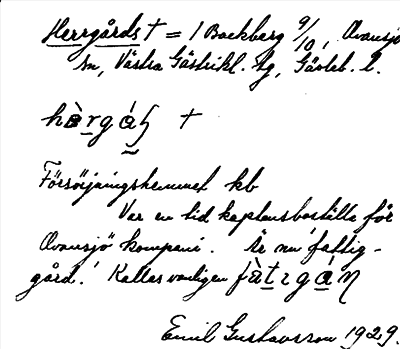 Herrgårds † = 1 Backberg 9/10, Ovansjö
sn, Västra Gästrikl. tg, Gävleb. l.
hàrgáɧ †
Försörjningshemmet kb
Var en tid kaptensboställe för
Ovansjö kompani. Är nu "fattig-
gård." Kallas vanligen fàtıgáη
Emil Gustavsson 1929.